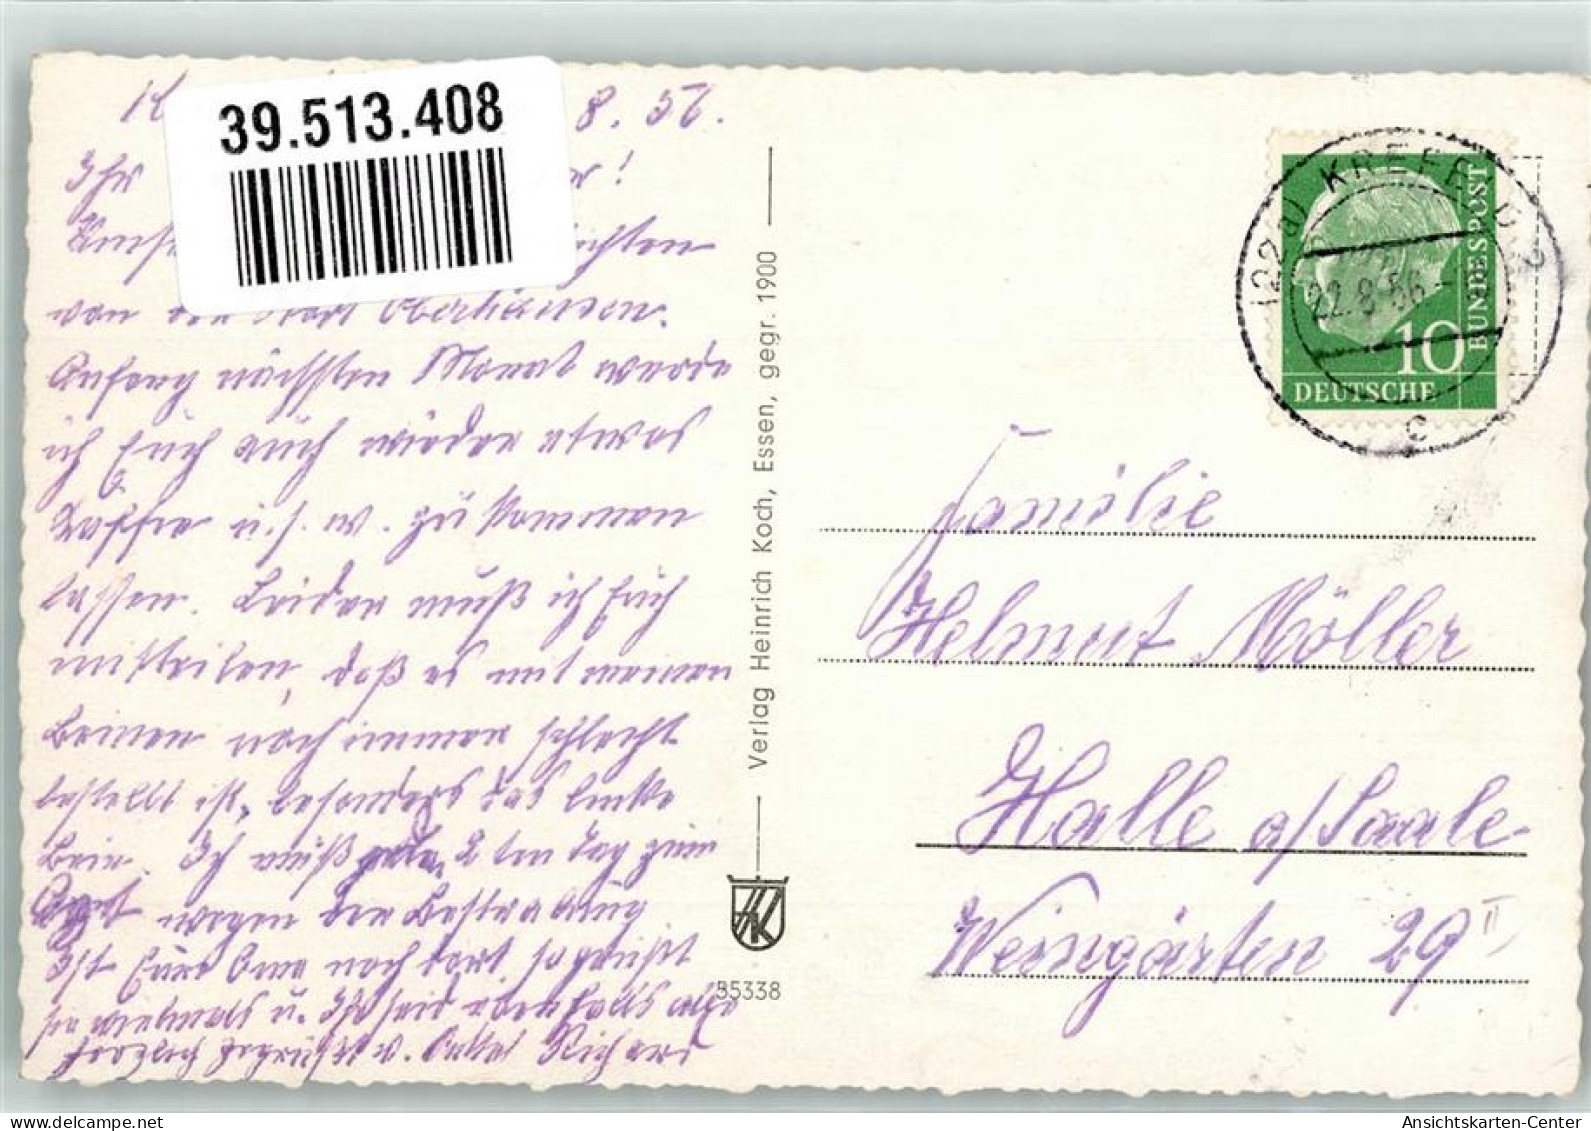 39.513.408
8. 56.
Ihr
von der Stadt Oberhausen.
Anfang nächsten Monat werde
ich Euch auch wieder etwas
Kaffee u.s.w. zukommen
lassen. Leider muß ich Euch
mitteilen, daß es mit meinen
Beinen noch immer schlecht
bestellt ist, besonders das linke
Bein. Ich muß jeden 2 ten Tag zum
Arzt wegen der Bestrahlung
Ist Eure Oma noch dort, so grüßt
sie vielmals u. Ihr seid ebenfalls alle
herzlich gegrüßt v. Onkel Richard
Verlag Heinrich Koch, Essen, gegr. 1900
HK
35338
(22a) KREFELD
22.8.56
c
DEUTSCHE
BUNDESPOST
10
Familie
Helmut Möller
Halle a/Saale
Weingärten 29 II
Ansichtskarten-Center